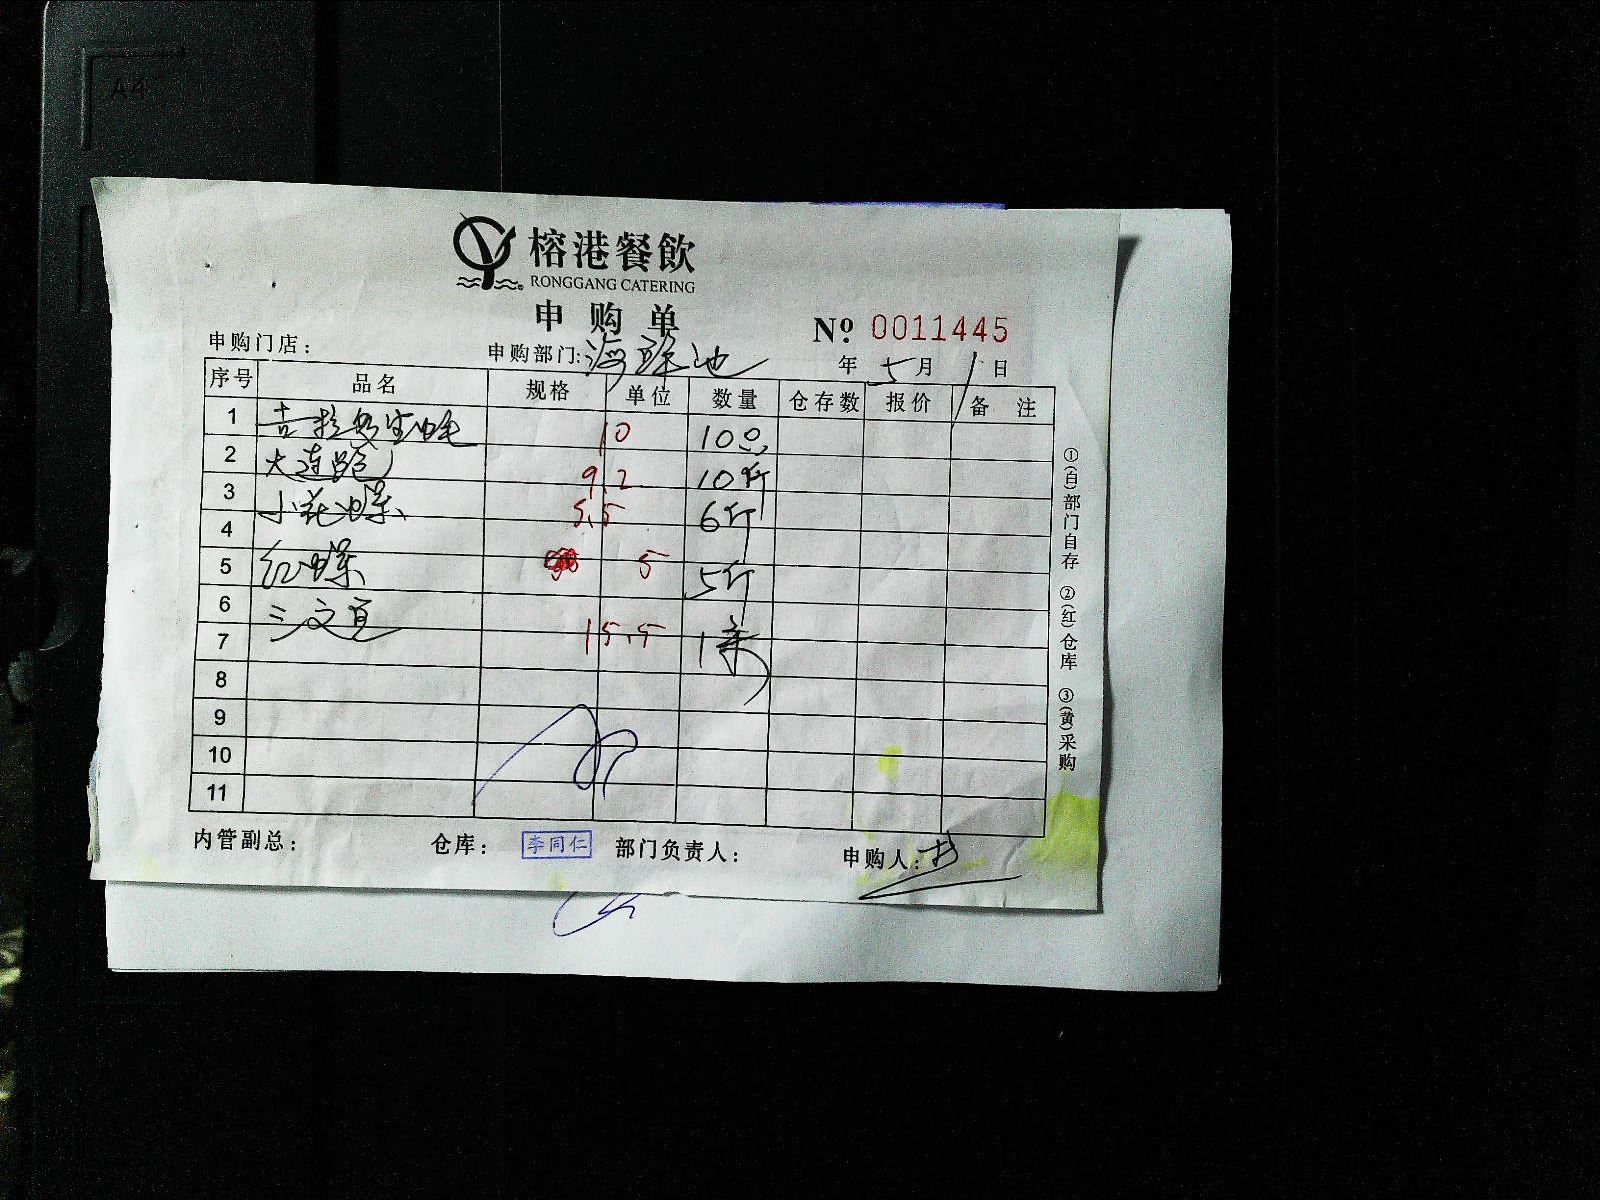 A4
榕港餐飲
RONGGANG CATERING
申购单
№ 0011445
申购门店：
申购部门：海鲜池
年 5月 1日
序号 品名 规格 单位 数量 仓存数 报价 备注
1 吉拉多生蚝 10 10
2 大连鲍 9.2 10斤
3 小花螺 5.5 6斤
4
5 红螺 5 5斤
6 三文鱼
7 15.5 1条
8
9
10
11
内管副总： 仓库： 李同仁 部门负责人： 申购人：
①(白)部门自存 ②(红)仓库 ③(黄)采购